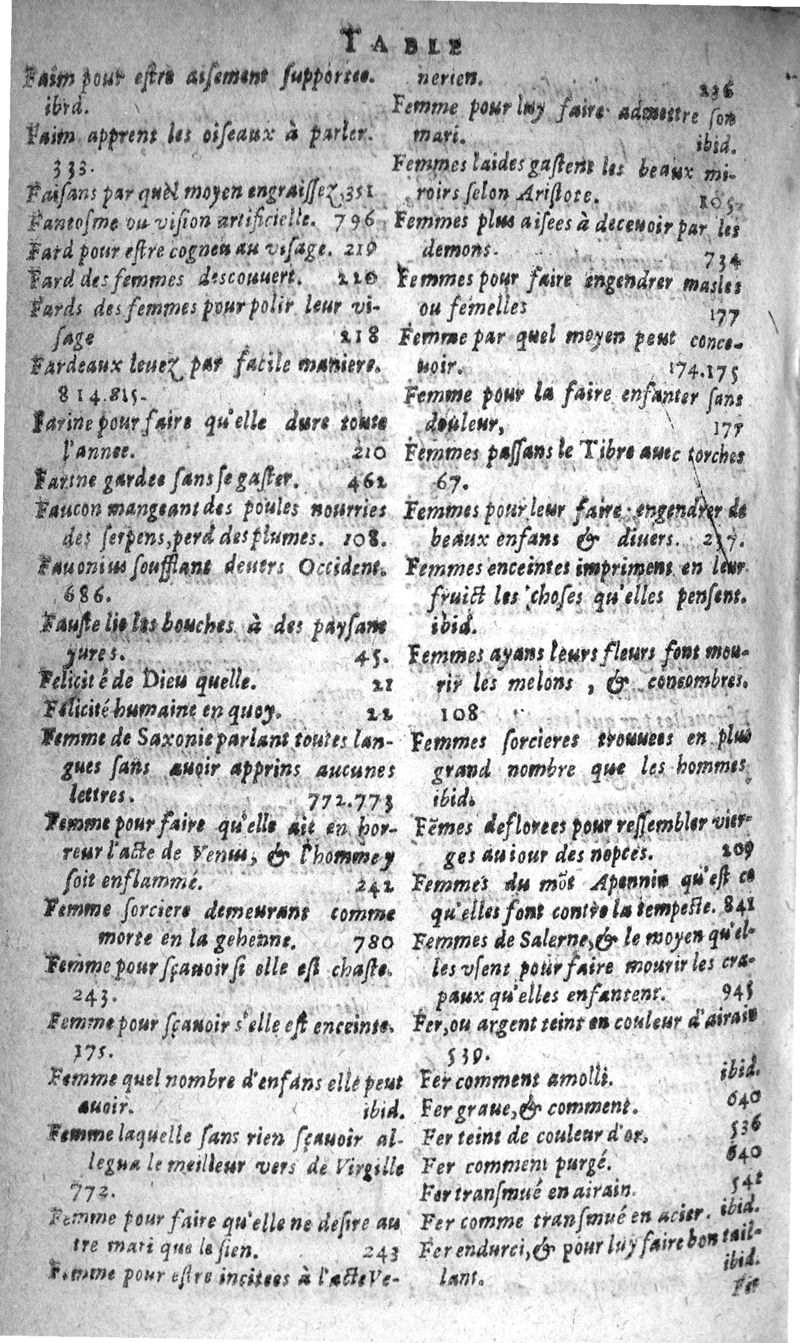 TABLE
Faim pour estre aisement supportee.
ibid.
Faim apprent les oiseaux à parler.
333.
Faisans par quel moyen engraissez 351
Fantosme ou vision artificielle. 796
Fard pour estre cogneu au visage. 219
Fard des femmes descouuert. 220
Fards des femmes pour polir leur vi-
sage 218
Fardeaux leuez par facile maniere.
814.815.
Farine pour faire qu'elle dure toute
l'annee. 210
Farine gardee sans se gaster. 462
Faucon mangeant des poules nourries
des serpens, perd des plumes. 108.
Fauonius soufflant deuers Occident.
686.
Fauste lie les bouches à des paysans
yures. 45.
Felicité de Dieu quelle. 21
Felicité humaine en quoy. 22
Femme de Saxonie parlant toutes lan-
gues sans auoir apprins aucunes
lettres. 772.773
Femme pour faire qu'elle ait en hor-
reur l'acte de Venus, & l'homme y
soit enflammé. 242
Femme sorciere demeurant comme
morte en la gehenne. 780
Femme pour sçauoir si elle est chaste.
243.
Femme pour sçauoir s'elle est enceinte.
175.
Femme quel nombre d'enfans elle peut
auoir. ibid.
Femme laquelle sans rien sçauoir al-
legua le meilleur vers de Virgille
772.
Femme pour faire qu'elle ne desire au
tre mari que le sien. 243
Femme pour estre incitees à l'acte Ve-
nerien. 236
Femme pour luy faire admettre son
mari. ibid.
Femmes laides gastent les beaux mi-
roirs selon Aristote. 105
Femmes plus aisees à deceuoir par les
demons. 734
Femmes pour faire engendrer masles
ou femelles 177
Femme par quel moyen peut conce-
uoir. 174.175
Femme pour la faire enfanter sans
douleur, 177
Femmes passans le Tibre auec torches
67.
Femmes pour leur faire engendrer de
beaux enfans & diuers. 237.
Femmes enceintes impriment en leur
fruict les choses qu'elles pensent.
ibid.
Femmes ayans leurs fleurs font mou-
rir les melons, & concombres.
108
Femmes sorcieres trouuees en plus
grand nombre que les hommes
ibid.
Fẽmes deflorees pour ressembler vier-
ges au iour des nopces. 209
Femmes du mõt Apennin qu'est ce
qu'elles font contre la tempeste. 841
Femmes de Salerne, & le moyen qu'el-
les vsent pour faire mourir les cra-
paux qu'elles enfantent. 945
Fer, ou argent teint en couleur d'airain
539.
Fer comment amolli. ibid.
Fer graue, & comment. 640
Fer teint de couleur d'or. 536
Fer comment purgé. 640
Fer transmué en airain. 541
Fer comme transmué en acier. ibid.
Fer endurci, & pour luy faire bon tail-
lant. ibid.
Fer